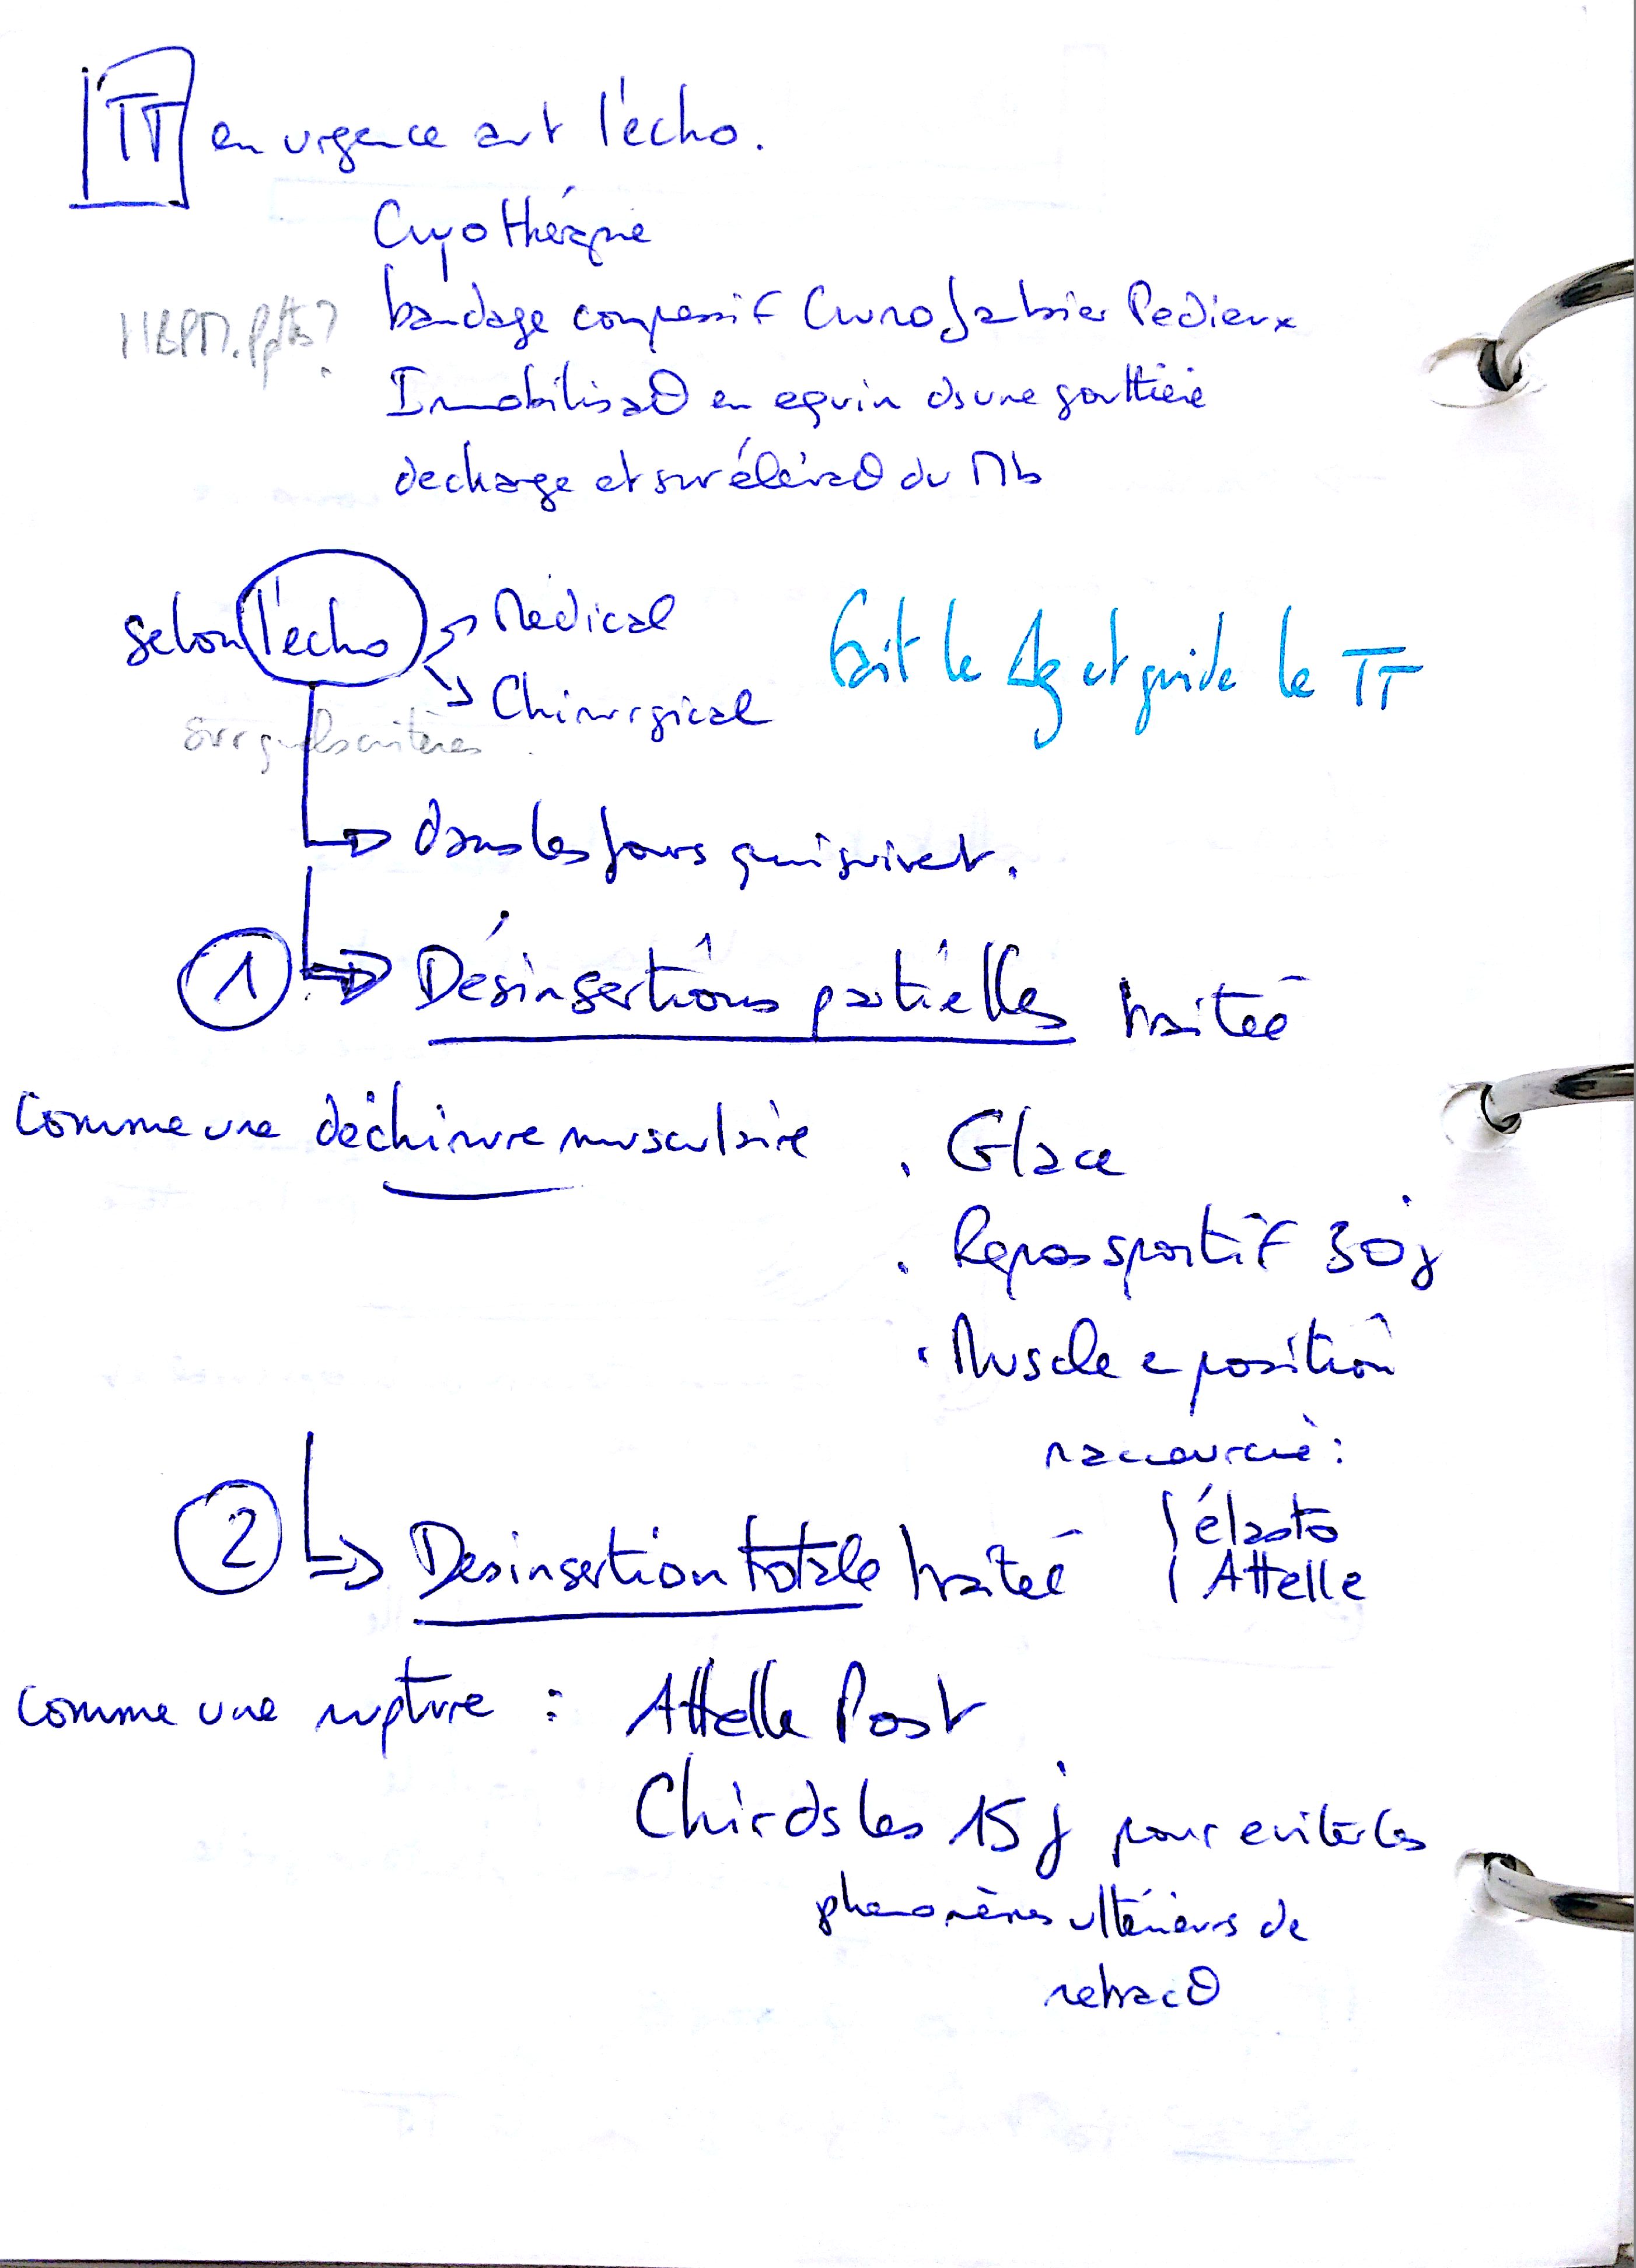 TT en urgence avt l'echo.
Cryothérapie
HBPM. Pptes?
bandage compressif Cruro Jambier Pedieux
Immobilisaθ en equin ds une gouttière
decharge et surélévaθ du Mb
selon l'echo
Medical
Chirurgical
fait le Δg et guide le TT
sur quels critères
dans les jours qui suivent.
1 Désinsertions partielles traitée
comme une déchirure musculaire
. Glace
. Repos sportif 30j
. Muscle en position
raccourcie :
élasto
Attelle
2 Desinsertion totale traitée
comme une rupture : Attelle Post
Chir ds les 15 j pour eviter les
phenomènes ultérieurs de
retracθ